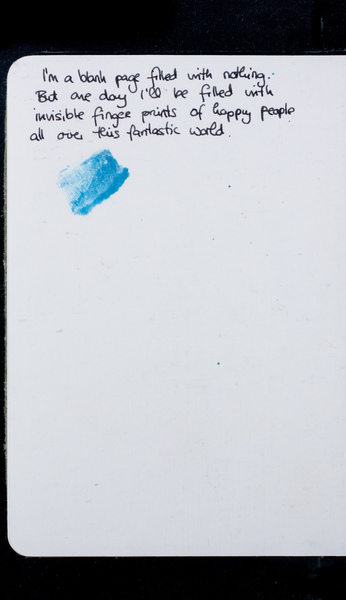 I'm a blank page filled with nothing.
But one day I'll be filled with
invisible finger prints of happy people
all over this fantastic world.